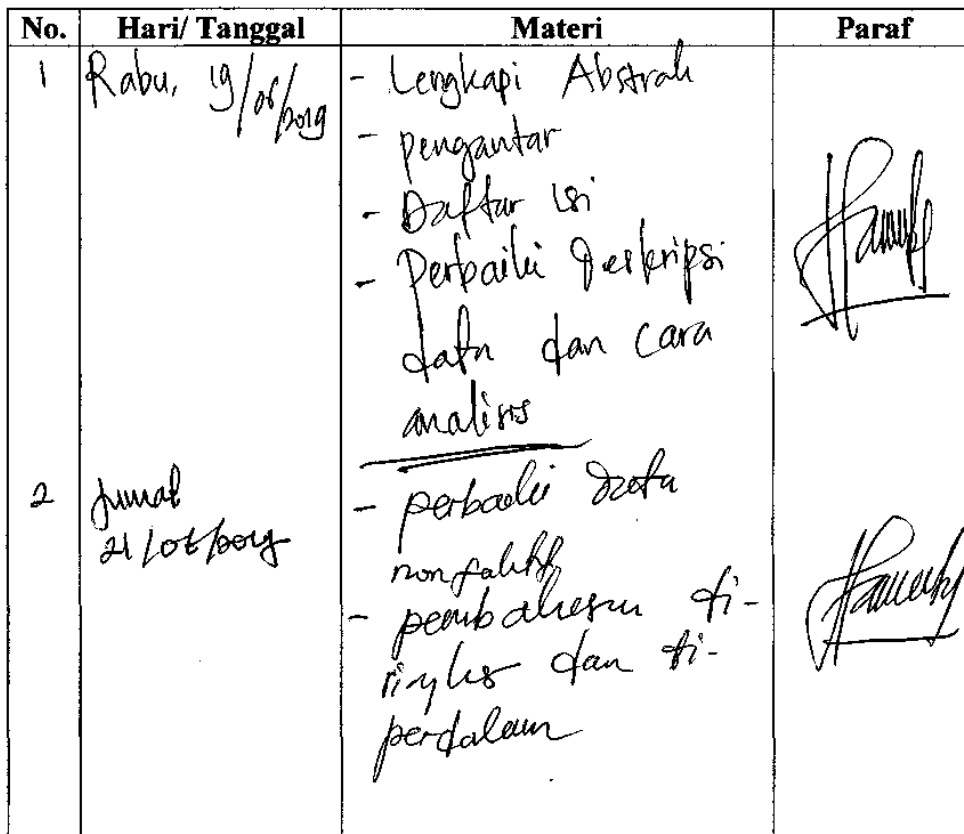 No. Hari/ Tanggal Materi Paraf
1 Rabu, 19/06/2019 - Lengkapi Abstrak
- pengantar
- Daftar isi
- Perbaiki deskripsi
data dan cara
analisis
2 Jumat - perbaiki data
21/06/2019
- pembahasan di-
ringkas dan di-
perdalam